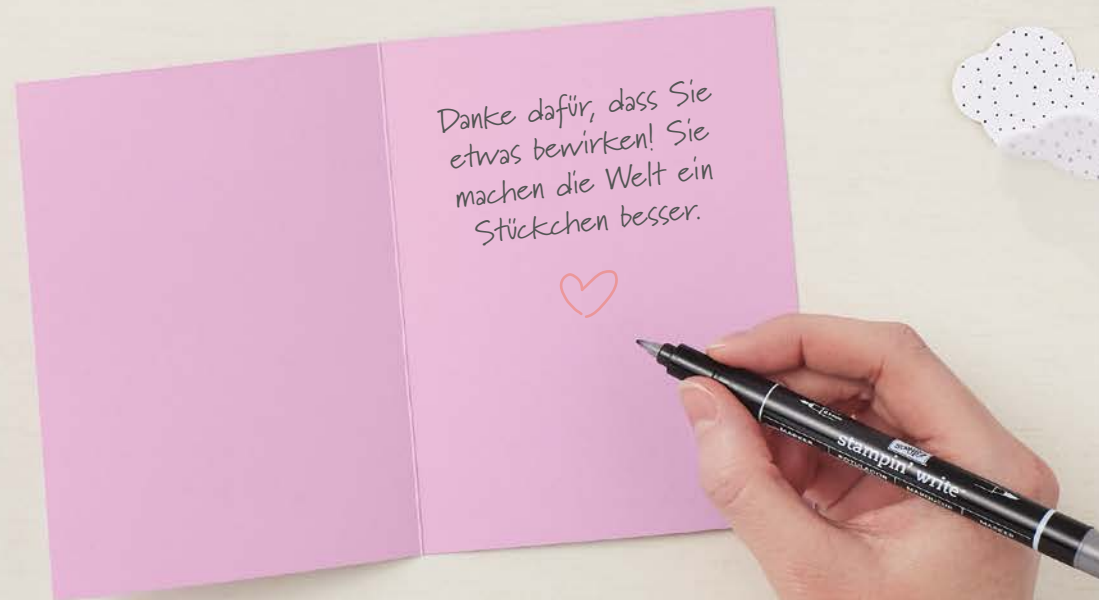 Danke dafür, dass Sie
etwas bewirken! Sie
machen die Welt ein
Stückchen besser.
stampin' write
MARKER
MARKER